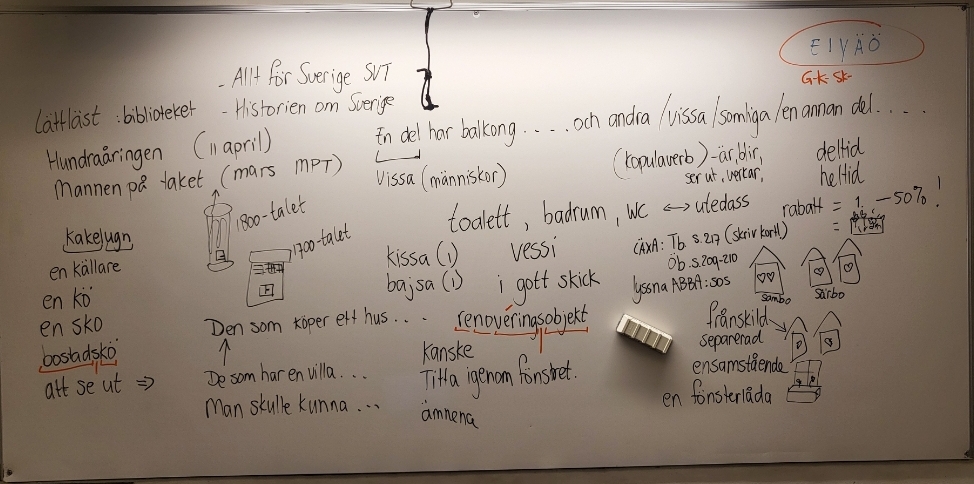 E I Y Ä Ö
G-K-SK-
- Allt för Sverige SVT
- Historien om Sverige
Lättläst : biblioteket
Hundraåringen (11 april)
Mannen på taket (mars MPT)
En del har balkong .... och andra / vissa / somliga / en annan del ....
Vissa (människor)
(kopulaverb) - är, blir,
ser ut, verkar,
deltid
heltid
1800-talet
1700-talet
kakelugn
en källare
en kö
en sko
bostadskö
att se ut ⇒
toalett, badrum, WC ↔ utedass
kissa (i) vessi
bajsa (i) i gott skick
rabatt = 1. -50% !
=
LÄXA: Tb s.217 (skriv kort!)
Öb.s.209-210
lyssna ABBA: SOS
sambo
särbo
Den som köper ett hus ...
De som har en villa ...
Man skulle kunna ...
renoveringsobjekt
Kanske
Titta igenom fönstret.
ämnena
frånskild
separerad
ensamstående
en fönsterlåda